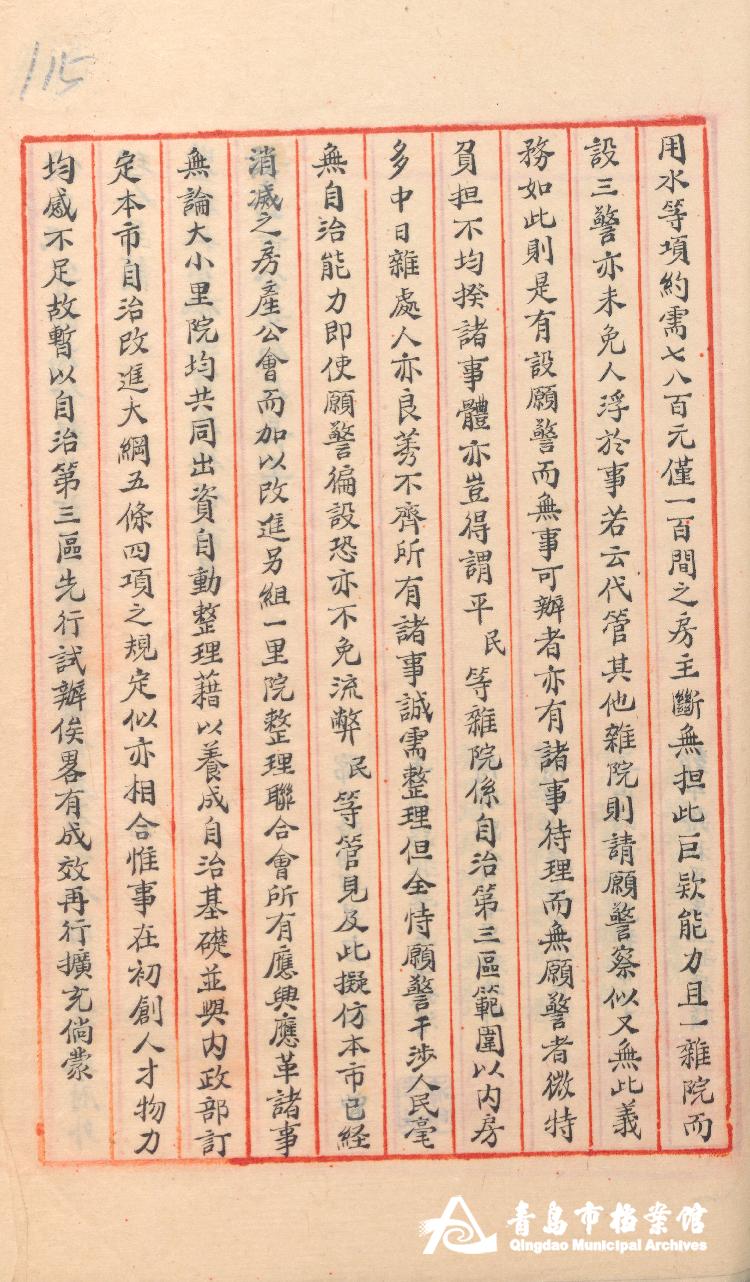 115
用水等項約需七八百元僅一百間之房主斷無担此巨欵能力且一雜院而
設三警亦未免人浮於事若云代管其他雜院則請願警察似又無此義
務如此則是有設願警而無事可辦者亦有諸事待理而無願警者微特
負担不均揆諸事體亦豈得謂平民等雜院係自治第三區範圍以内房
多中日雜處人亦良莠不齊所有諸事誠需整理但全恃願警干涉人民毫
無自治能力即使願警徧設恐亦不免流弊民等管見及此擬仿本市已經
消滅之房產公會而加以改進另組一里院整理聯合會所有應興應革諸事
無論大小里院均共同出資自動整理藉以養成自治基礎並與内政部訂
定本市自治改進大綱五條四項之規定似亦相合惟事在初創人才物力
均感不足故暫以自治第三區先行試辦俟畧有成效再行擴充倘蒙
青島市档案馆
Qingdao Municipal Archives